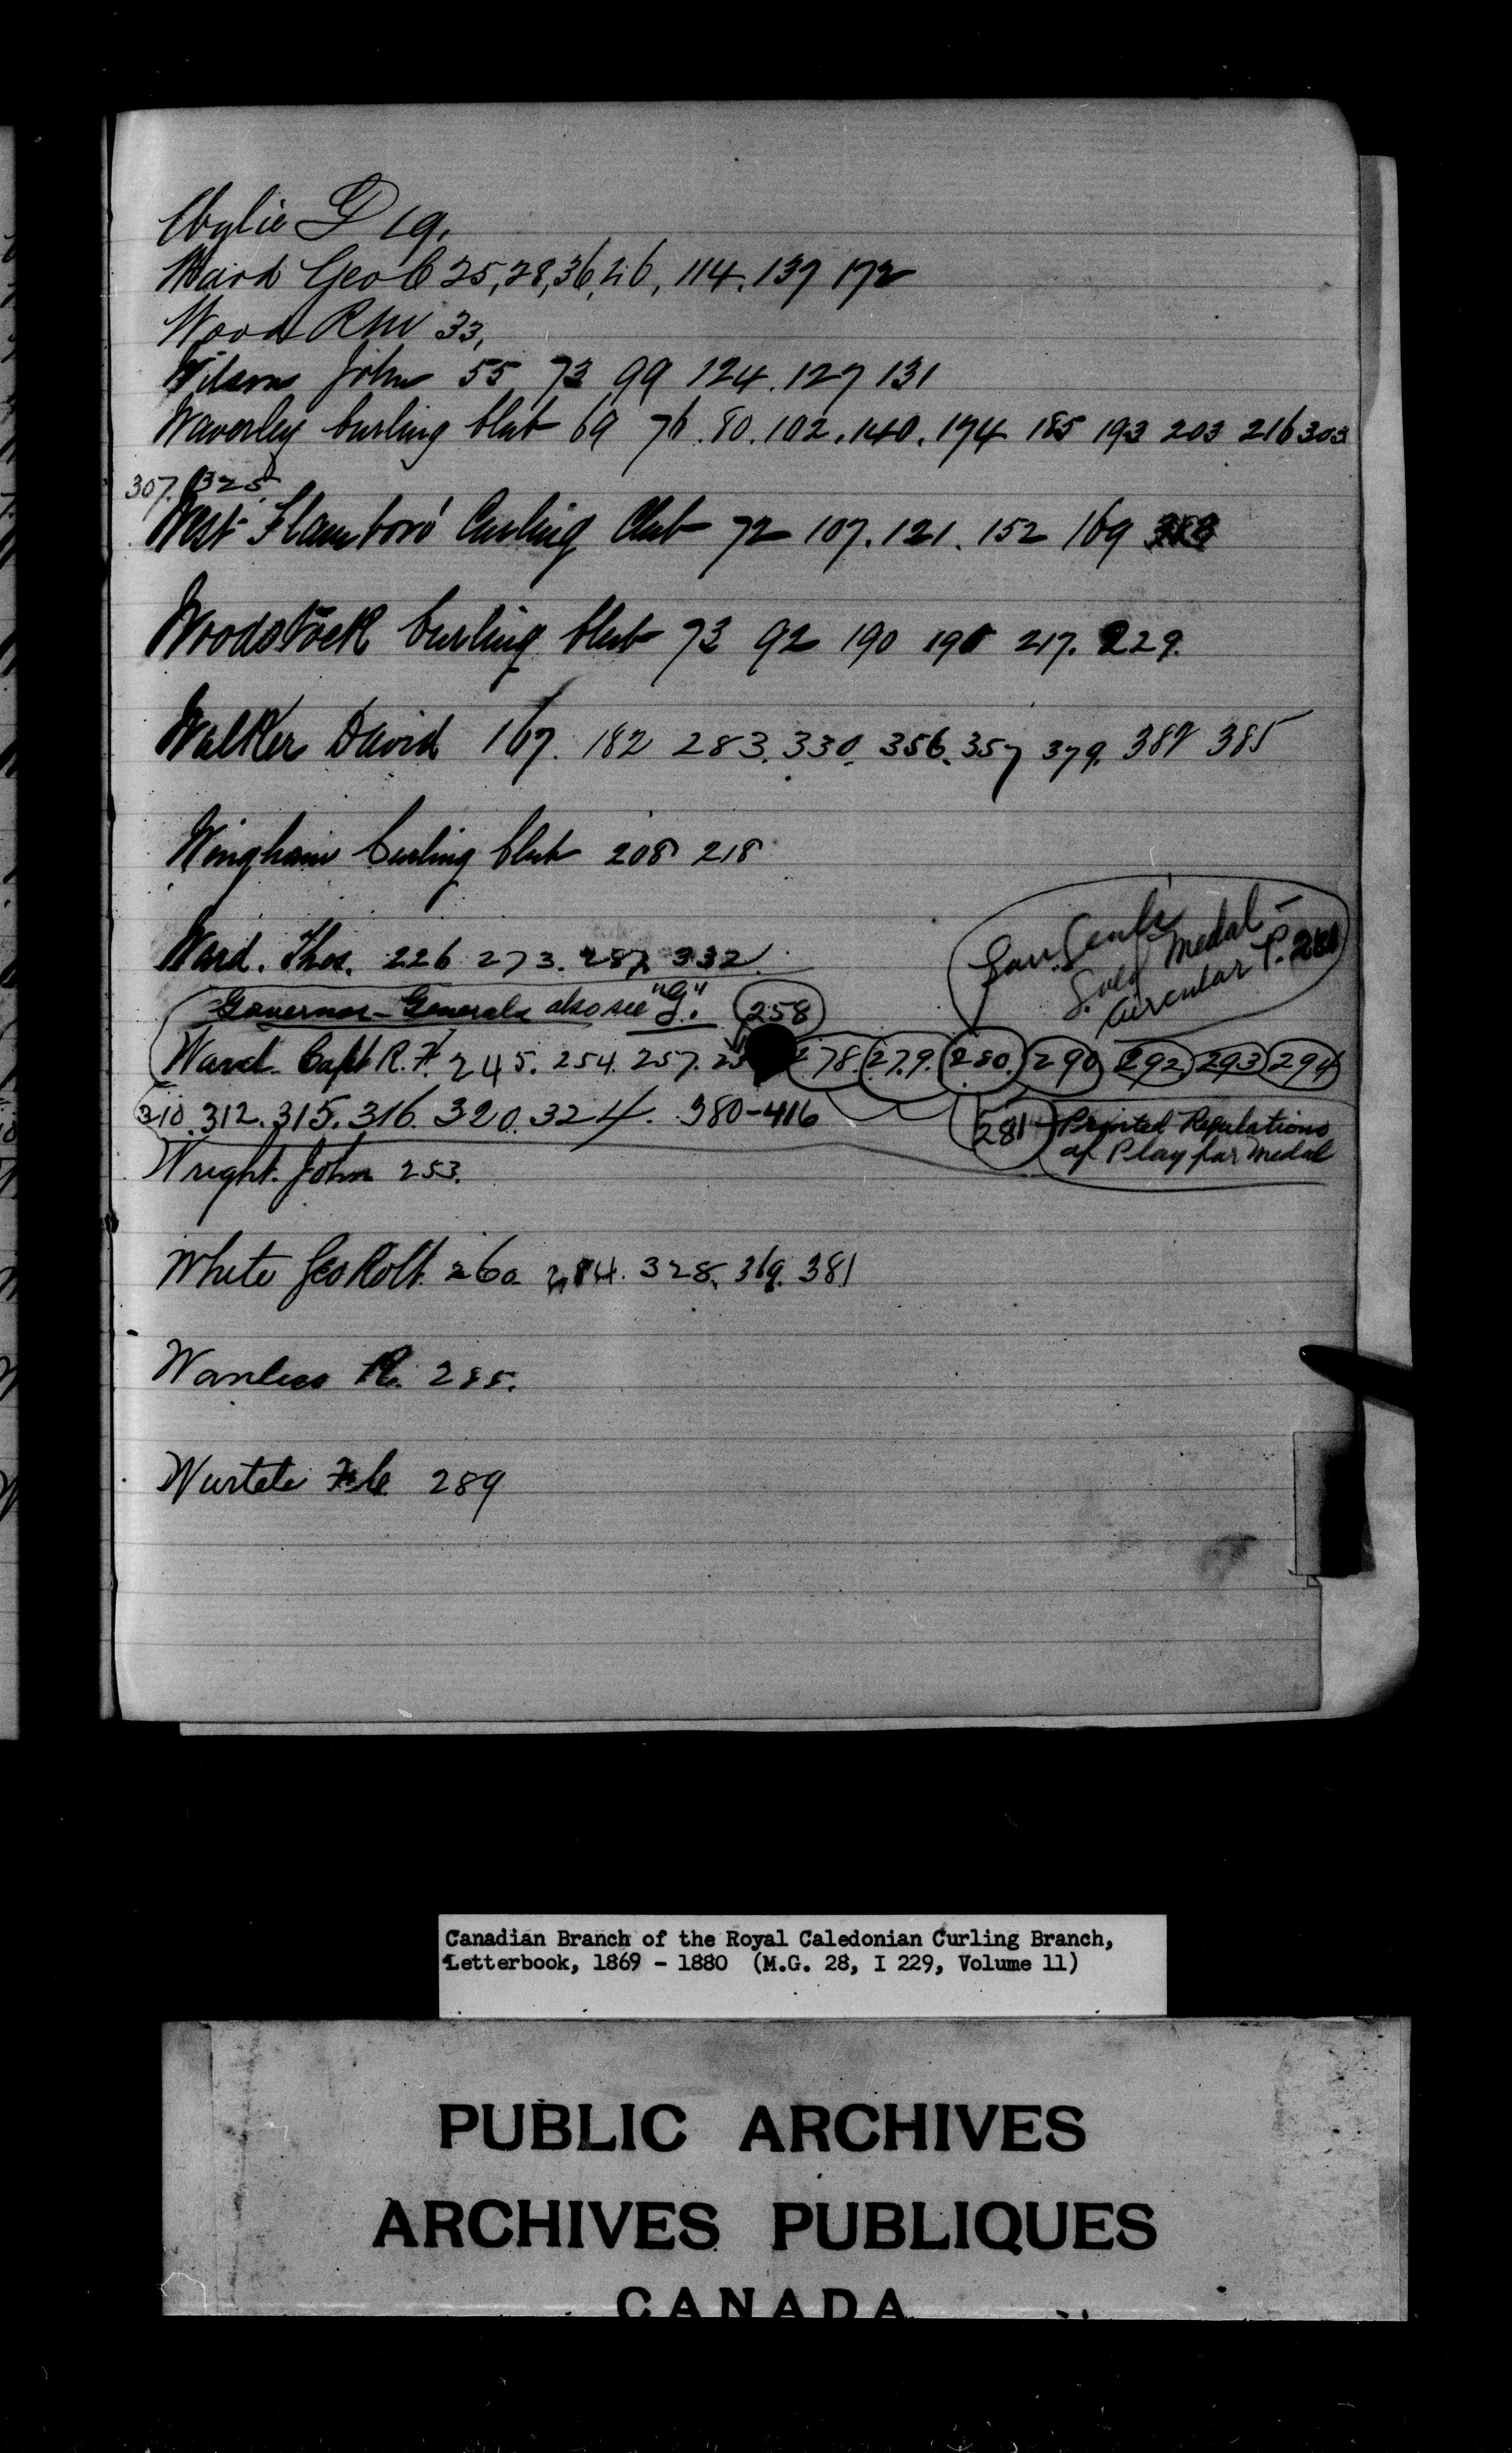 Wylie D 19.
Ward Geo C 25, 28, 36, 46, 114. 137 172
Wood RW 33,
Wilson John 55 73 99 124. 127 131
Waverley Curling Club 69 76. 80. 102. 140. 174 185 193 203 216 303
307. 325.
West Flamboro' Curling Club 72 107. 121. 152 169
Woodstock Curling Club 73 92 190 217. 229.
Walker David 167. 182 283. 330. 356. 357 379. 385
Wingham Curling Club 208 218
Gov. Genl's
Gold Medal -
Circular P. 281
Ward. Thos. 226 273. 287. 332.
Governor-Generals also see "G". 258
Ward Capt R. H. 245. 254. 257. 278. 279. 280. 290 292. 293 294
310. 312. 315. 316. 320. 324. 380-416
281 - Printed Regulations
of Play for Medal
Wright. John 253.
White Geo Robt. 260 328. 369. 381
Wanless R. 285.
Wurtele 289
Canadian Branch of the Royal Caledonian Curling Branch,
Letterbook, 1869 - 1880 (M.G. 28, I 229, Volume 11)
PUBLIC ARCHIVES
ARCHIVES PUBLIQUES
CANADA